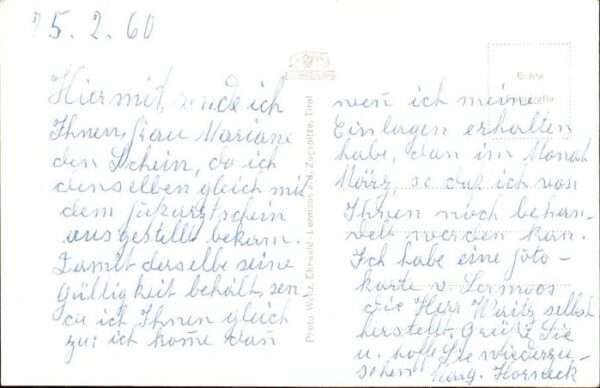 15.2.60
Hiermit sende ich
Ihnen, Frau Mariane
den Schein, da ich
denselben gleich mit
dem
ausgestellt bekam.
Damit derselbe seine
Gültigkeit behält, sen-
de ich Ihnen gleich
zu: ich kome dan
wen ich meine
Einlagen erhalten
habe, dan im Monat
März, so daß ich von
Ihnen noch behan-
delt werden kan.
Ich habe eine Foto-
karte v. Lermoos
die Herr Waitz selbst
herstellt. Grüße Sie
u. hoffe Sie wiederzu-
sehen Marg. Horneck
Photo Waitz, Ehrwald-Lermoos a.d. Zugspitze, Tirol
Echte